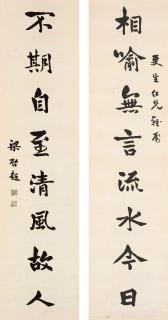 更生仁兄雅屬
相喻無言流水今日
不期自至清風故人
梁啓超